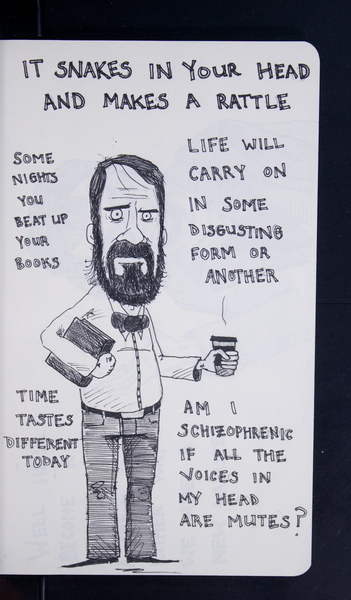 IT SNAKES IN YOUR HEAD
AND MAKES A RATTLE
SOME
NIGHTS
YOU
BEAT UP
YOUR
BOOKS
LIFE WILL
CARRY ON
IN SOME
DISGUSTING
FORM OR
ANOTHER
TIME
TASTES
DIFFERENT
TODAY
AM I
SCHIZOPHRENIC
IF ALL THE
VOICES IN
MY HEAD
ARE MUTES?